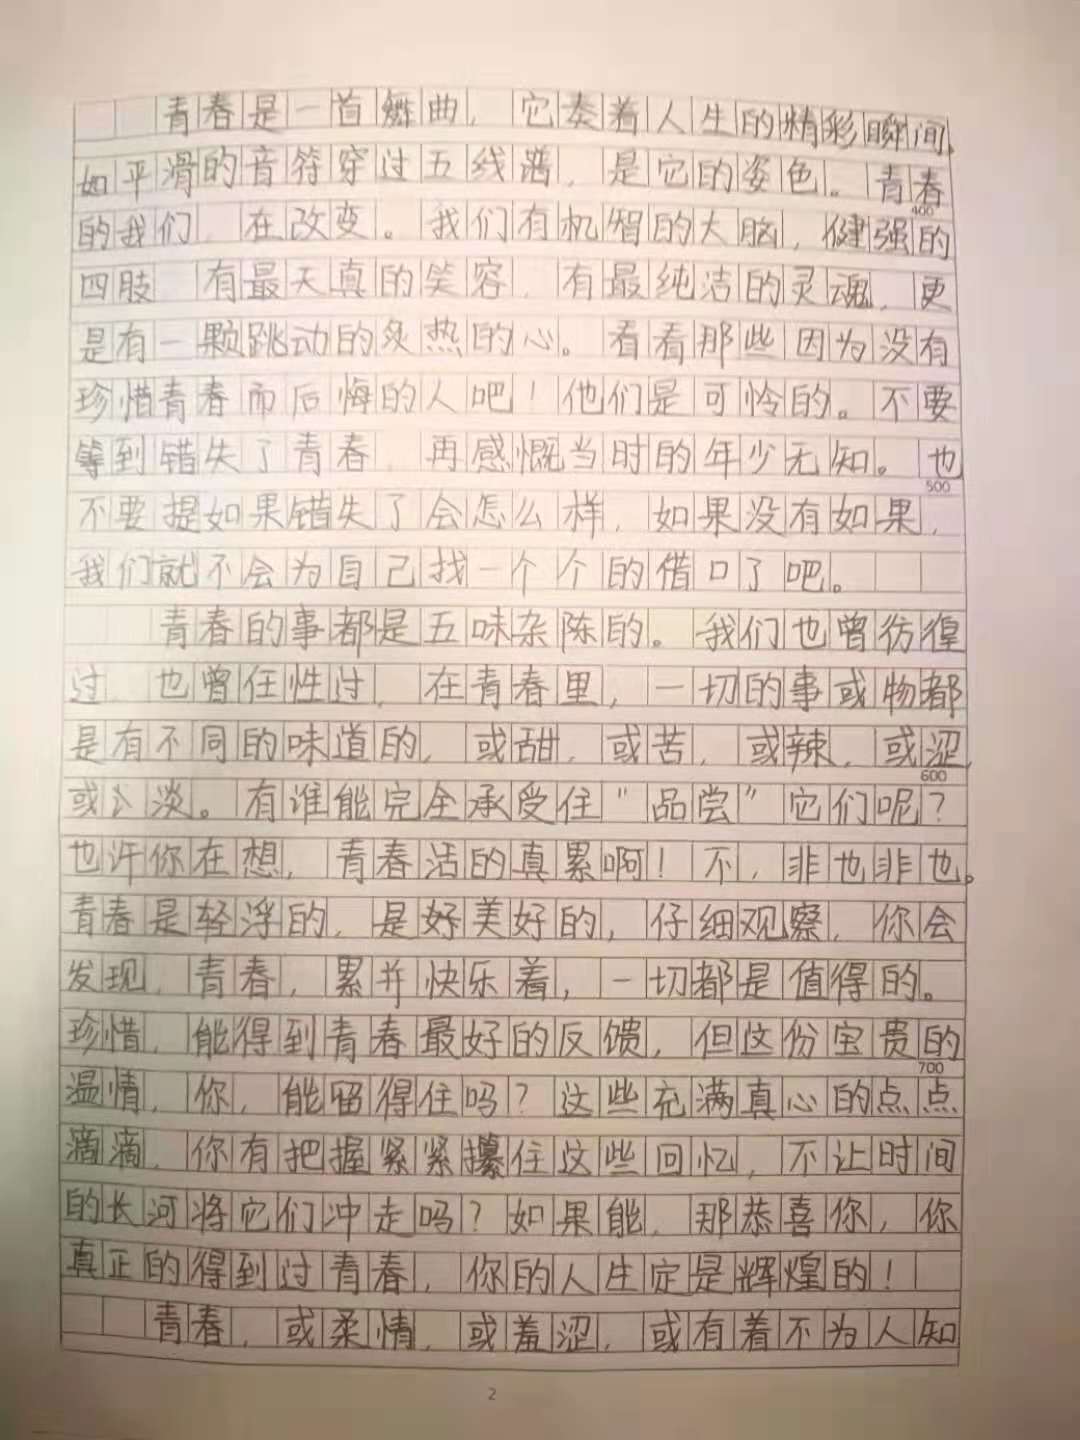 青春是一首舞曲，它奏着人生的精彩瞬间，
如平滑的音符穿过五线谱，是它的姿色。青春
400
的我们，在改变。我们有机智的大脑，健强的
四肢，有最天真的笑容，有最纯洁的灵魂，更
是有一颗跳动的炙热的心。看看那些因为没有
珍惜青春而后悔的人吧！他们是可怜的。不要
等到错失了青春，再感慨当时的年少无知。也
500
不要提如果错失了会怎么样，如果没有如果，
我们就不会为自己找一个个的借口了吧。
青春的事都是五味杂陈的。我们也曾彷徨
过，也曾任性过，在青春里，一切的事或物都
是有不同的味道的，或甜，或苦，或辣，或涩，
600
或淡。有谁能完全承受住“品尝”它们呢？
也许你在想，青春活的真累啊！不，非也非也。
青春是轻浮的，是好美好的，仔细观察，你会
发现，青春，累并快乐着，一切都是值得的。
珍惜，能得到青春最好的反馈，但这份宝贵的
700
温情，你，能留得住吗？这些充满真心的点点
滴滴，你有把握紧紧攥住这些回忆，不让时间
的长河将它们冲走吗？如果能，那恭喜你，你
真正的得到过青春，你的人生定是辉煌的！
青春，或柔情，或羞涩，或有着不为人知
2